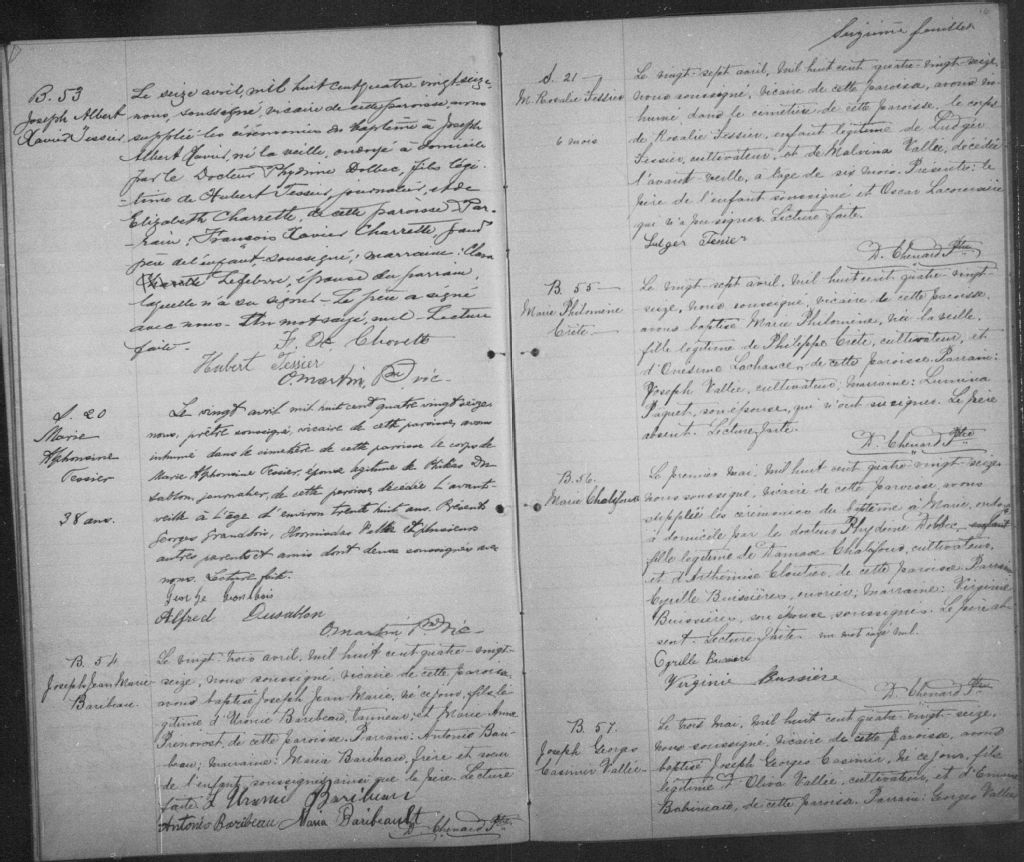 B. 53
Joseph Albert
Xavier Tessier
Le seize avril, mil huit cent quatre vingt seize
nous, soussigné, vicaire de cette paroisse avons
supplée les cérémonies du baptême à Joseph
Albert Xavier, né la veille, ondoyé à domicile
par le Docteur Phydime Dolbec, fils légi-
time de Hubert Tessier, journalier, et de
Elizabeth Charrette, de cette paroisse. Par-
rain: François Xavier Charrette, grand
père de l'enfant, soussigné; marraine: Clara
Lefebvre, épouse du parrain,
laquelle n'a su signer. Le père a signé
avec nous. Un mot rayé, nul. Lecture
faite.
F. X. Chorette
Hubert Tessier
O. Martin Ptre vic-
S. 20
Marie
Alphonsine
Tessier
38 ans.
Le vingt avril mil huit cent quatre vingt seize
nous, prêtre soussigné, vicaire de cette paroisse, avons
inhumé dans le cimetière de cette paroisse le corps de
Marie Alphonsine Tessier, épouse légitime de Du-
sablon, journalier, de cette paroisse, décédée l'avant-
veille à l'âge d'environ trente huit ans. Présents
Georges Grandbois, Hormisdas Vallée et plusieurs
autres parents et amis dont deux soussignés avec
nous. Lecture faite.
George Granbois
Alfred Dusablon
O Martin Ptre Vic-
B. 54
Joseph Jean Marie
Baribeau.
Le vingt-trois avril, mil huit cent quatre-vingt-
seize, nous soussigné, vicaire de cette paroisse,
avons baptisé Joseph Jean Marie, né ce jour, fils lé-
gitime d'Uranie Baribeau, tanneur, et Marie Anne
Prénovost, de cette paroisse. Parrain: Antonio Bari-
beau; marraine: Maria Baribeau, frère et sœur
de l'enfant, soussignés ainsi que le père. Lecture
faite.
Uranie Baribeau
Antonio Baribeau Maria Baribeault
D. Chenard Ptre
Seizième feuillet
S. 21
M. Rosalie Tessier
6 mois
Le vingt-sept avril, mil huit cent quatre-vingt-seize,
nous soussigné, vicaire de cette paroisse, avons in-
humé, dans le cimetière de cette paroisse, le corps
de Rosalie Tessier, enfant légitime de Ludger
Tessier, cultivateur, et de Malvina Vallée, décédée
l'avant-veille, à l'âge de six mois. Présents: le
père de l'enfant soussigné et Oscar Lacoursière
qui n'a pu signer. Lecture faite.
Ludger Tessier
D. Chenard Ptre
B. 55
Marie Philomène
Crête
Le vingt-sept avril, mil huit cent quatre-vingt-
seize, nous soussigné, vicaire de cette paroisse,
avons baptisé Marie Philomène, née la veille,
fille légitime de Philippe Crête, cultivateur, et
d'Onésime Lachance, de cette paroisse. Parrain:
Joseph Vallée, cultivateur; marraine: Lumina
Paquet, son épouse, qui n'ont su signer. Le père
absent. Lecture faite.
D. Chenard Ptre
B. 56.
Marie Chalifoux
Le premier mai, mil huit cent quatre-vingt-seize,
nous soussigné, vicaire de cette paroisse, avons
supplée les cérémonies du baptême à Marie, ondoyée
à domicile par le docteur Phydime Dolbec,
fille légitime de Damase Chalifour, cultivateur,
et d'Arthémise Cloutier, de cette paroisse. Parrain
Cyrille Buissières, ouvrier; marraine: Virginie
Buissières, son épouse, soussignés. Le père ab-
sent. Lecture faite. un mot rayé nul.
Cyrille Bussiere
Virginie Bussière
D. Chenard Ptre
B. 57.
Joseph Georges
Casimir Vallée
Le trois mai, mil huit cent quatre-vingt-seize,
nous soussigné, vicaire de cette paroisse, avons
baptisé Joseph Georges Casimir, né ce jour, fils
légitime d'Oliva Vallée, cultivateur, et
Babineau, de cette paroisse. Parrain: Georges Vallée